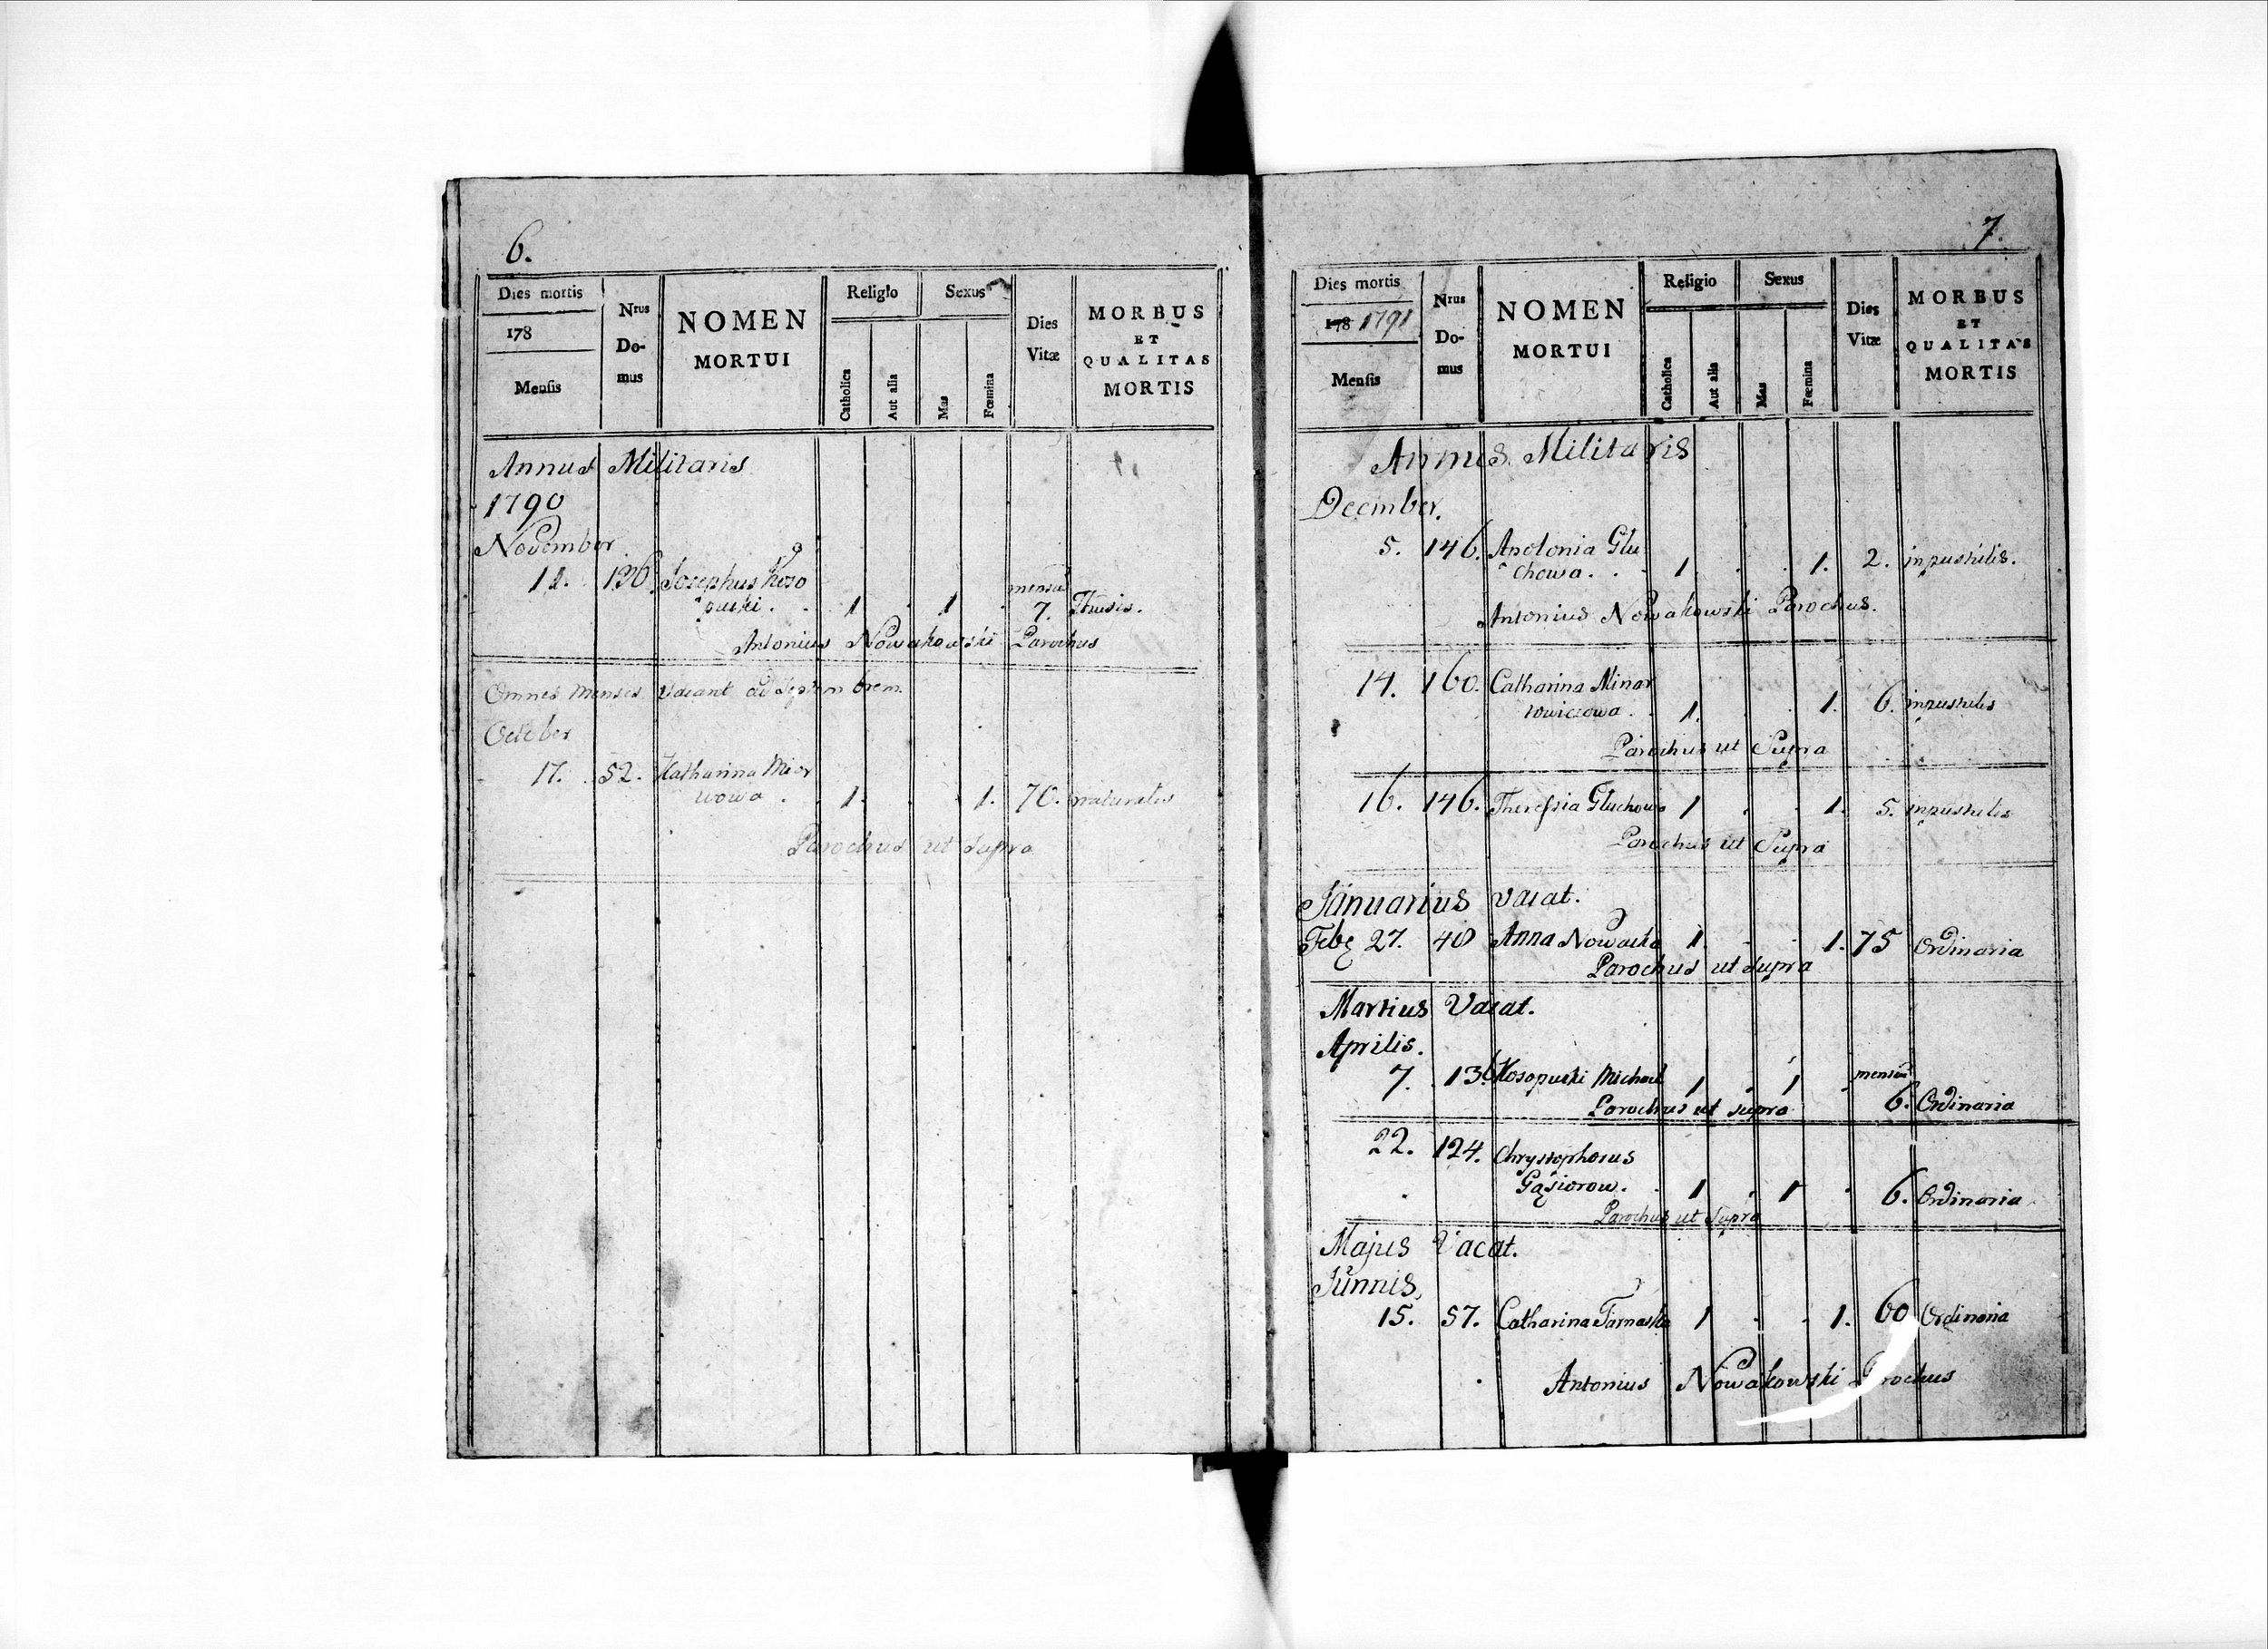 6.
Dies mortis
178
Mensis
Nrus Do-mus
NOMEN MORTUI
Religio
Catholica
Aut alia
Sexus
Mas
Fœmina
Dies Vitæ
MORBUS ET QUALITAS MORTIS
Annus Militaris
1790
November
136. Josephus Koso
mensiū
puski . . 1 . 1 . 7.
Antonius Nowakowski Parochus
Omnes Menses Vacant ad Septembrem.
October
17. 52. Katharina
wowa . . 1. . . 1. 70. naturalis
Parochus ut Supra
7.
Dies mortis
178 1791
Mensis
Nrus Do-mus
NOMEN MORTUI
Religio
Catholica
Aut alia
Sexus
Mas
Fœmina
Dies Vitæ
MORBUS ET QUALITAS MORTIS
Annus Militaris
December.
5. 146. Apolonia Glu
chowa . . 1 . . 1. 2.
Antonius Nowakowski Parochus.
14. 160. Catharina Minar
towiczowa . . 1. . . 1. 6.
Parochus ut Supra
16. 146. Theressia Gluchowa 1 . . 1. 5.
Parochus ut Supra
Januarius vacat.
27. 40 Anna Nowacka 1 . . 1. 75 Ordinaria
Parochus ut supra
Martius Vacat.
Aprilis.
mensiū
7. 136 Kosopuski Michael 1 . 1 . 6. Ordinaria
Parochus ut supra
22. 124. Chrystophorus
Gąsiorow. . 1 . 1 . 6. Ordinaria
Parochus ut Supra
Majus Vacat.
Junnis,
15. 57. Catharina Tarnaska 1 . . 1. 60 Ordinaria
Antonius Nowakowski Parochus